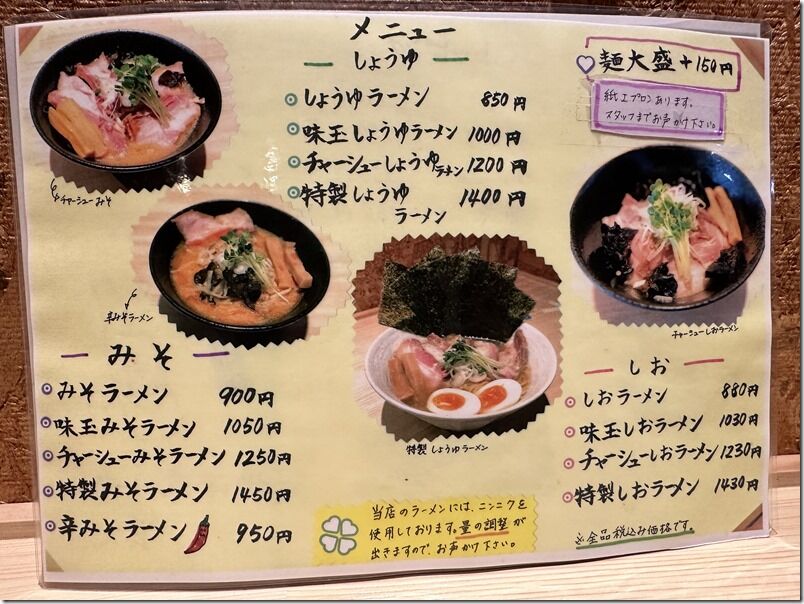 メニュー
しょうゆ
しょうゆラーメン 850円
味玉しょうゆラーメン 1000円
チャーシューしょうゆラーメン 1200円
特製しょうゆ 1400円
ラーメン
麺大盛+150円
紙エプロンあります。
スタッフまでお声がけ下さい。
チャーシューみそ
辛みそラーメン
チャーシューしおラーメン
特製しょうゆラーメン
みそ
みそラーメン 900円
味玉みそラーメン 1050円
チャーシューみそラーメン 1250円
特製みそラーメン 1450円
辛みそラーメン 950円
しお
しおラーメン 880円
味玉しおラーメン 1030円
チャーシューしおラーメン 1230円
特製しおラーメン 1430円
当店のラーメンには、ニンニクを
使用しております。量の調整が
出きますので、お声かけ下さい。
※全品税込み価格です。